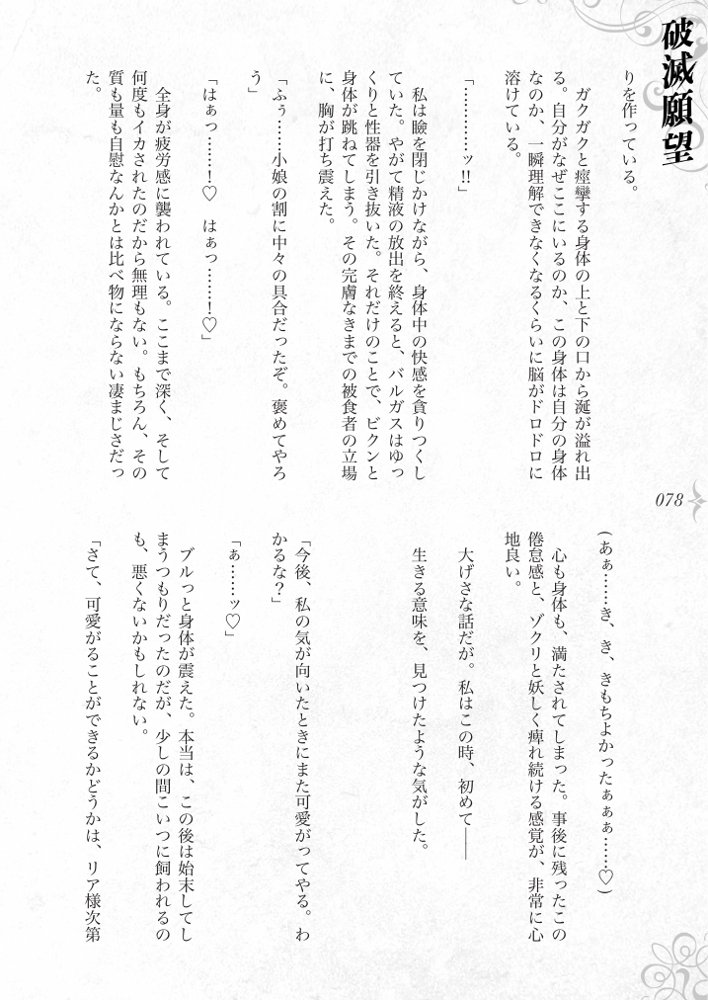 破滅願望
りを作っている。
　ガクガクと痙攣する身体の上と下の口から涎が溢れ出
る。自分がなぜここにいるのか、この身体は自分の身体
なのか、一瞬理解できなくなるくらいに脳がドロドロに
溶けている。
「…………ッ!!」
　私は瞼を閉じかけながら、身体中の快感を貪りつくし
ていた。やがて精液の放出を終えると、バルガスはゆっ
くりと性器を引き抜いた。それだけのことで、ビクンと
身体が跳ねてしまう。その完膚なきまでの被食者の立場
に、胸が打ち震えた。
「ふぅ……小娘の割に中々の具合だったぞ。褒めてやろ
う」
「はぁっ……！♡　はぁっ……！♡」
　全身が疲労感に襲われている。ここまで深く、そして
何度もイカされたのだから無理もない。もちろん、その
質も量も自慰なんかとは比べ物にならない凄まじさだっ
た。
078
(あぁ……き、き、きもちよかったぁぁぁ……♡)
　心も身体も、満たされてしまった。事後に残ったこの
倦怠感と、ゾクリと妖しく痺れ続ける感覚が、非常に心
地良い。
　大げさな話だが。私はこの時、初めて――
　生きる意味を、見つけたような気がした。
「今後、私の気が向いたときにまた可愛がってやる。わ
かるな？」
「ぁ……ッ♡」
　ブルっと身体が震えた。本当は、この後は始末してし
まうつもりだったのだが、少しの間こいつに飼われるの
も、悪くないかもしれない。
「さて、可愛がることができるかどうかは、リア様次第